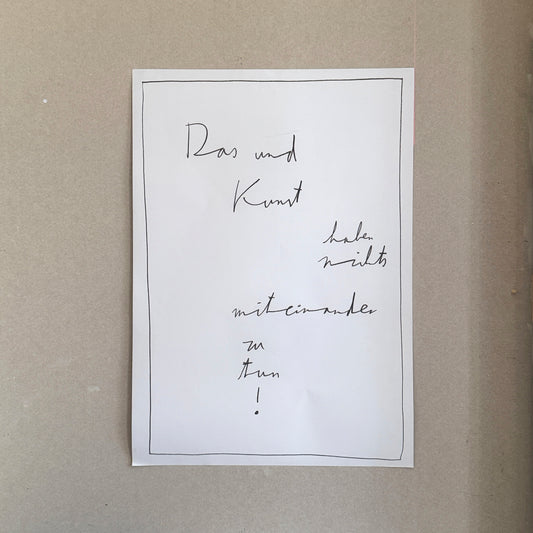 Das und
Kunst
haben
nichts
miteinander
zu
tun
!